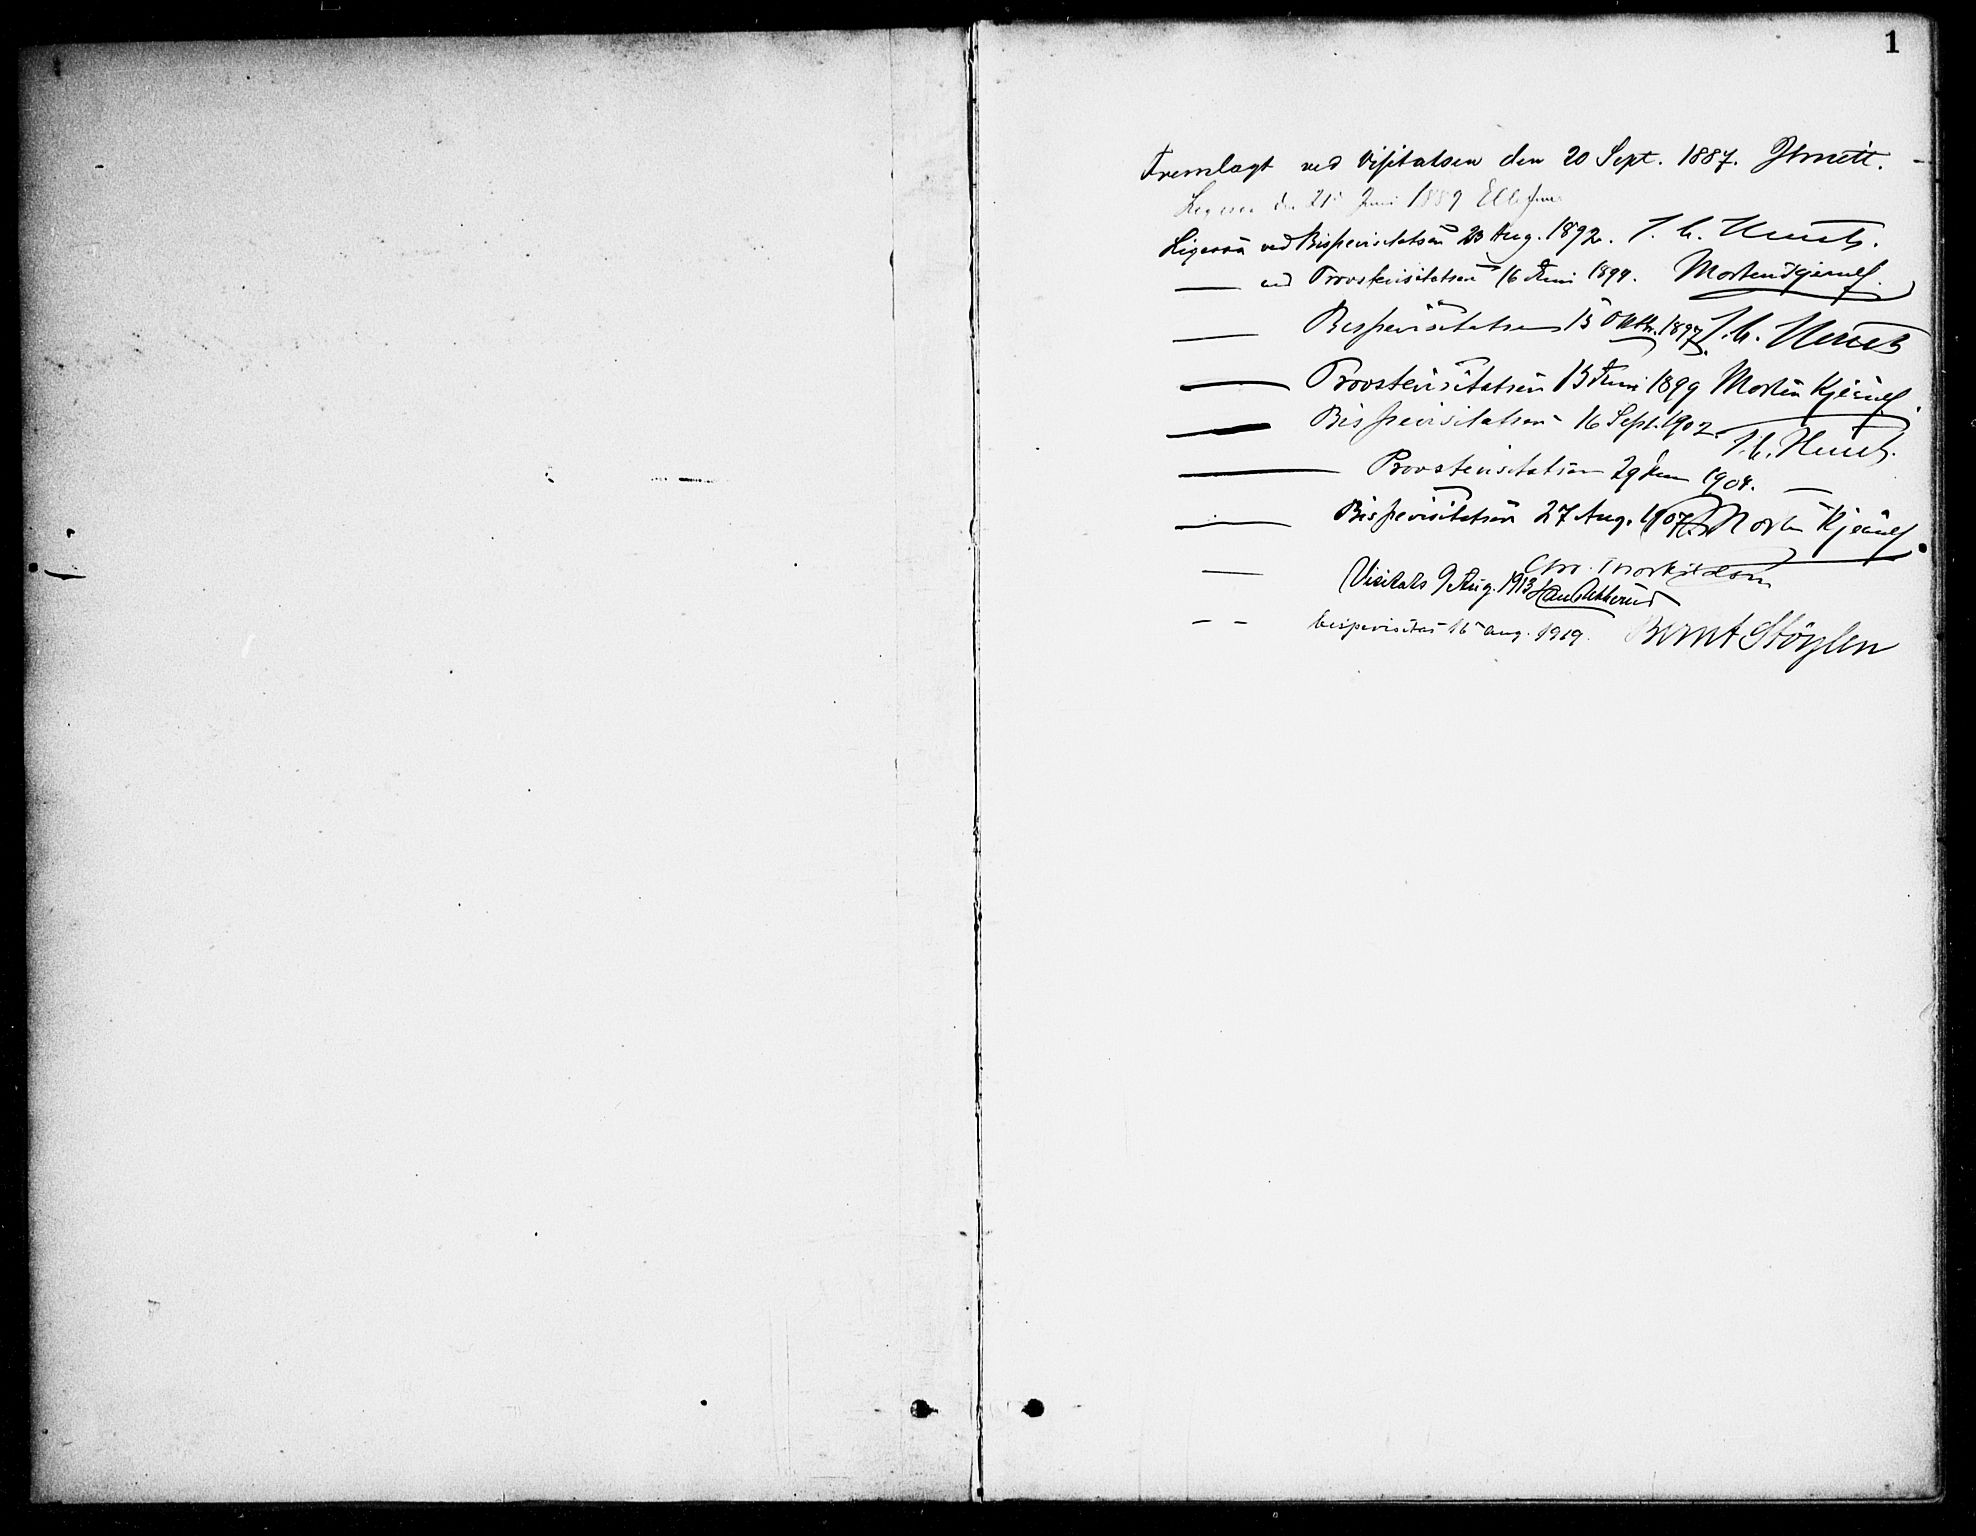 1
Fremlagt ved Visitatsen den 20 Sept. 1887.
Ligesaa den 21 Juni 1889
Ligesaa ved Bispevisitatsen 23 Aug. 1892. J. C. Heuch.
— ved Provstevisitatsen 16 Juni 1894. Morten Kjerulf.
— Bispevisitatsen 15 Oktbr. 1897. J. C. Heuch
— Provstevisitatsen 13 Juni 1899 Morten Kjerulf.
— Bispevisitatsen 16 Sept. 1902. J. C. Heuch.
— Provstevisitatsen 29 1904. —
— Bispevisitatsen 27 Aug. 1907. Morten Kjerulf
— Chr. Thorkildsen
Visitats 9 Aug. 1913
— — bispevisitas 16 aug. 1919. Bernt Støylen